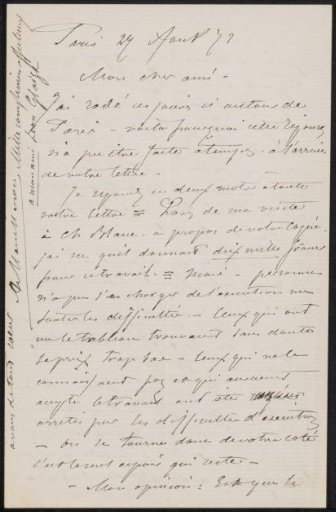 Paris 24 Août 72
Mon cher ami -
J'ai rodé ces jours ci autour de
Paris - voilà pourquoi cette réponse
n'a pu être faite à temps - à l'arrivée
de votre lettre -
Je réponds en deux mots à toute
votre lettre = Lors de ma visite
à Ch Blanc - à propos de votre copie
j'ai su qu'il donnait deux mille francs
pour ce travail = Mais - personne
n'a pu s'en charger de l'exécution vu
toutes les difficultés - Ceux qui ont
vu le tableau trouvaient sans doute
le prix trop bas - Ceux qui ne le
connaissant pas et qui auraient
accepté le travail ont été
arrêtés par les difficultés d'exécution
- on se tourne donc de votre côté
c'est le seul espoir qui reste -
- Mon opinion : Est que le
à mon ami Léon
Mille compliments